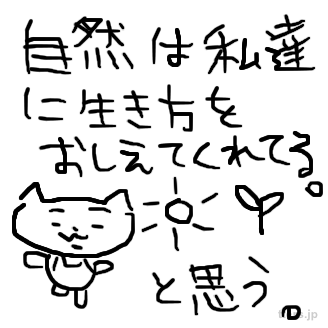 自然は私達
に生き方を
おしえてくれてる。
と思う。